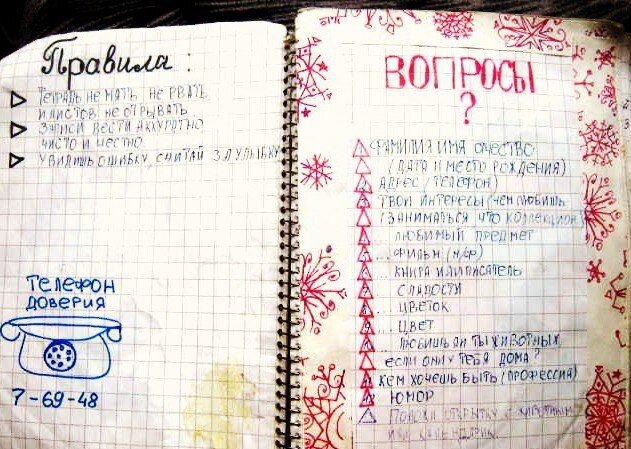 Правила :
ТЕТРАДЬ НЕ МЯТЬ, НЕ РВАТЬ
И ЛИСТОВ НЕ ОТРЫВАТЬ
ЗАПИСИ ВЕСТИ АККУРАТНО
ЧИСТО И ЧЕСТНО
УВИДИШЬ ОШИБКУ, СЧИТАЙ ЗА УЛЫБКУ
ТЕЛЕФОН
ДОВЕРИЯ
7-69-48
ВОПРОСЫ
?
ФАМИЛИЯ ИМЯ ОЧЕСТВО
(ДАТА И МЕСТО РОЖДЕНИЯ)
АДРЕС (ТЕЛЕФОН)
ТВОИ ИНТЕРЕСЫ (ЧЕМ ЛЮБИШЬ
ЗАНИМАТЬСЯ ЧТО КОЛЛЕКЦИОН
ЛЮБИМЫЙ ПРЕДМЕТ
... ФИЛЬМ (М/Ф)
... КНИГА ИЛИ ПИСАТЕЛЬ
... СЛАДОСТИ
... ЦВЕТОК
... ЦВЕТ
ЛЮБИШЬ ЛИ ТЫ ЖИВОТНЫХ,
ЕСЛИ ОНИ У ТЕБЯ ДОМА?
КЕМ ХОЧЕШЬ БЫТЬ (ПРОФЕССИЯ)
ЮМОР
ОТКРЫТКУ С
ИЛИ КАЛЕНДАРИК